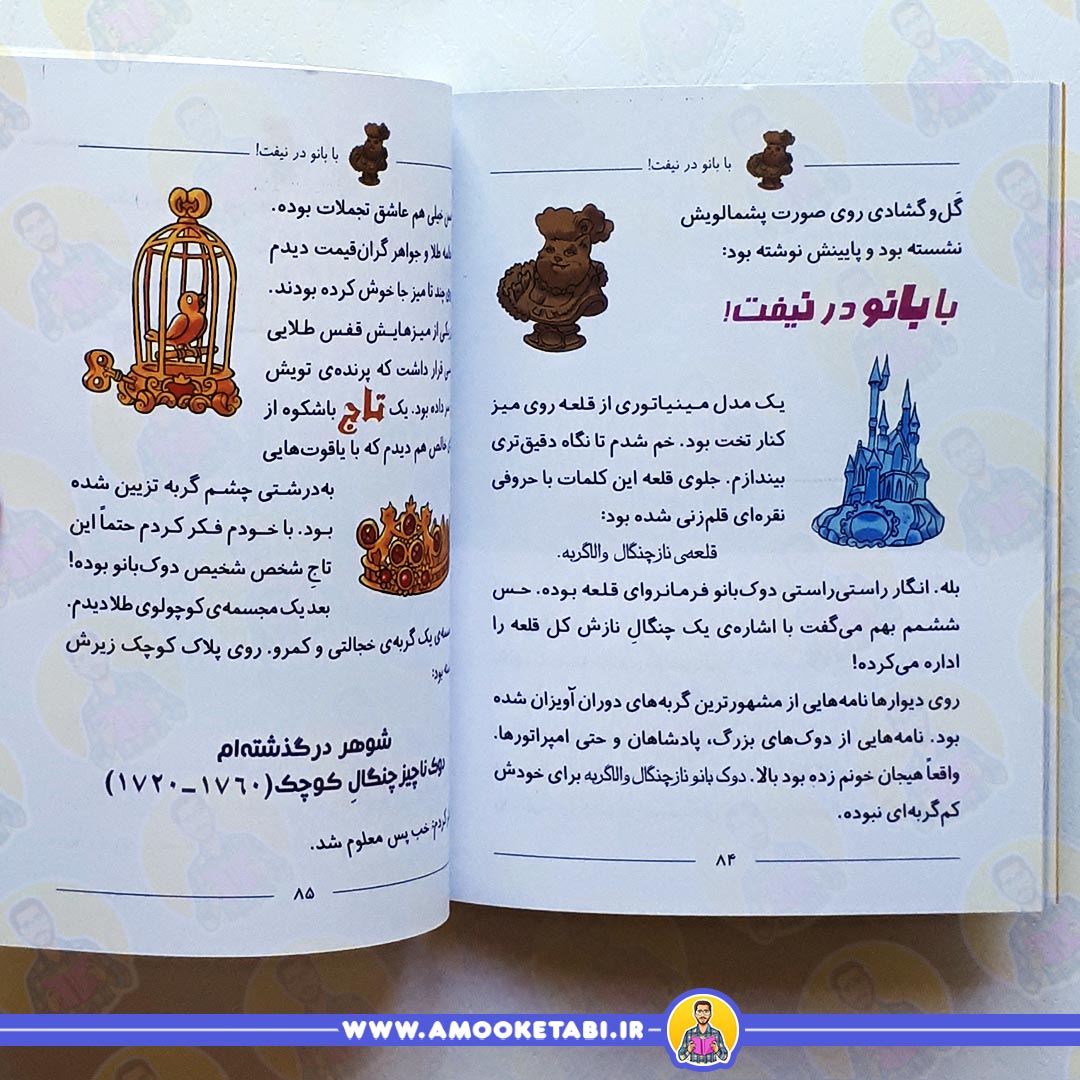 با بانو در نیفت!
گَل‌وگشادی روی صورت پشمالویش
نشسته بود و پایینش نوشته بود:
با بانو در نیفت!
یک مدل مینیاتوری از قلعه روی میز
کنار تخت بود. خم شدم تا نگاه دقیق‌تری
بیندازم. جلوی قلعه این کلمات با حروفی
نقره‌ای قلم‌زنی شده بود:
قلعه‌ی نازچنگال والاگربه.
بله. انگار راستی‌راستی دوک‌بانو فرمانروای قلعه بوده. حس
ششمم بهم می‌گفت با اشاره‌ی یک چنگالِ نازش کل قلعه را
اداره می‌کرده!
روی دیوارها نامه‌هایی از مشهورترین گربه‌های دوران آویزان شده
بود. نامه‌هایی از دوک‌های بزرگ، پادشاهان و حتی امپراتورها.
واقعاً هیجان خونم زده بود بالا. دوک بانو نازچنگال والاگربه برای خودش
کم‌گربه‌ای نبوده.
۸۴
با بانو در نیفت!
خیلی هم عاشق تجملات بوده.
طلا و جواهر گران‌قیمت دیدم
چند تا میز جا خوش کرده بودند.
از میزهایش قفس طلایی
قرار داشت که پرنده‌ی تویش
داده بود. یک تاج باشکوه از
خالص هم دیدم که با یاقوت‌هایی
به‌درشتی چشم گربه تزیین شده
بود. با خودم فکر کردم حتماً این
تاجِ شخص شخیص دوک‌بانو بوده!
بعد یک مجسمه‌ی کوچولوی طلا دیدم.
یک گربه‌ی خجالتی و کمرو. روی پلاک کوچک زیرش
بود:
شوهر درگذشته‌ام
دوک ناچیز چنگالِ کوچک (۱۷۶۰-۱۷۲۰)
کردم: خب پس معلوم شد.
۸۵
WWW.AMOOKETABI.IR